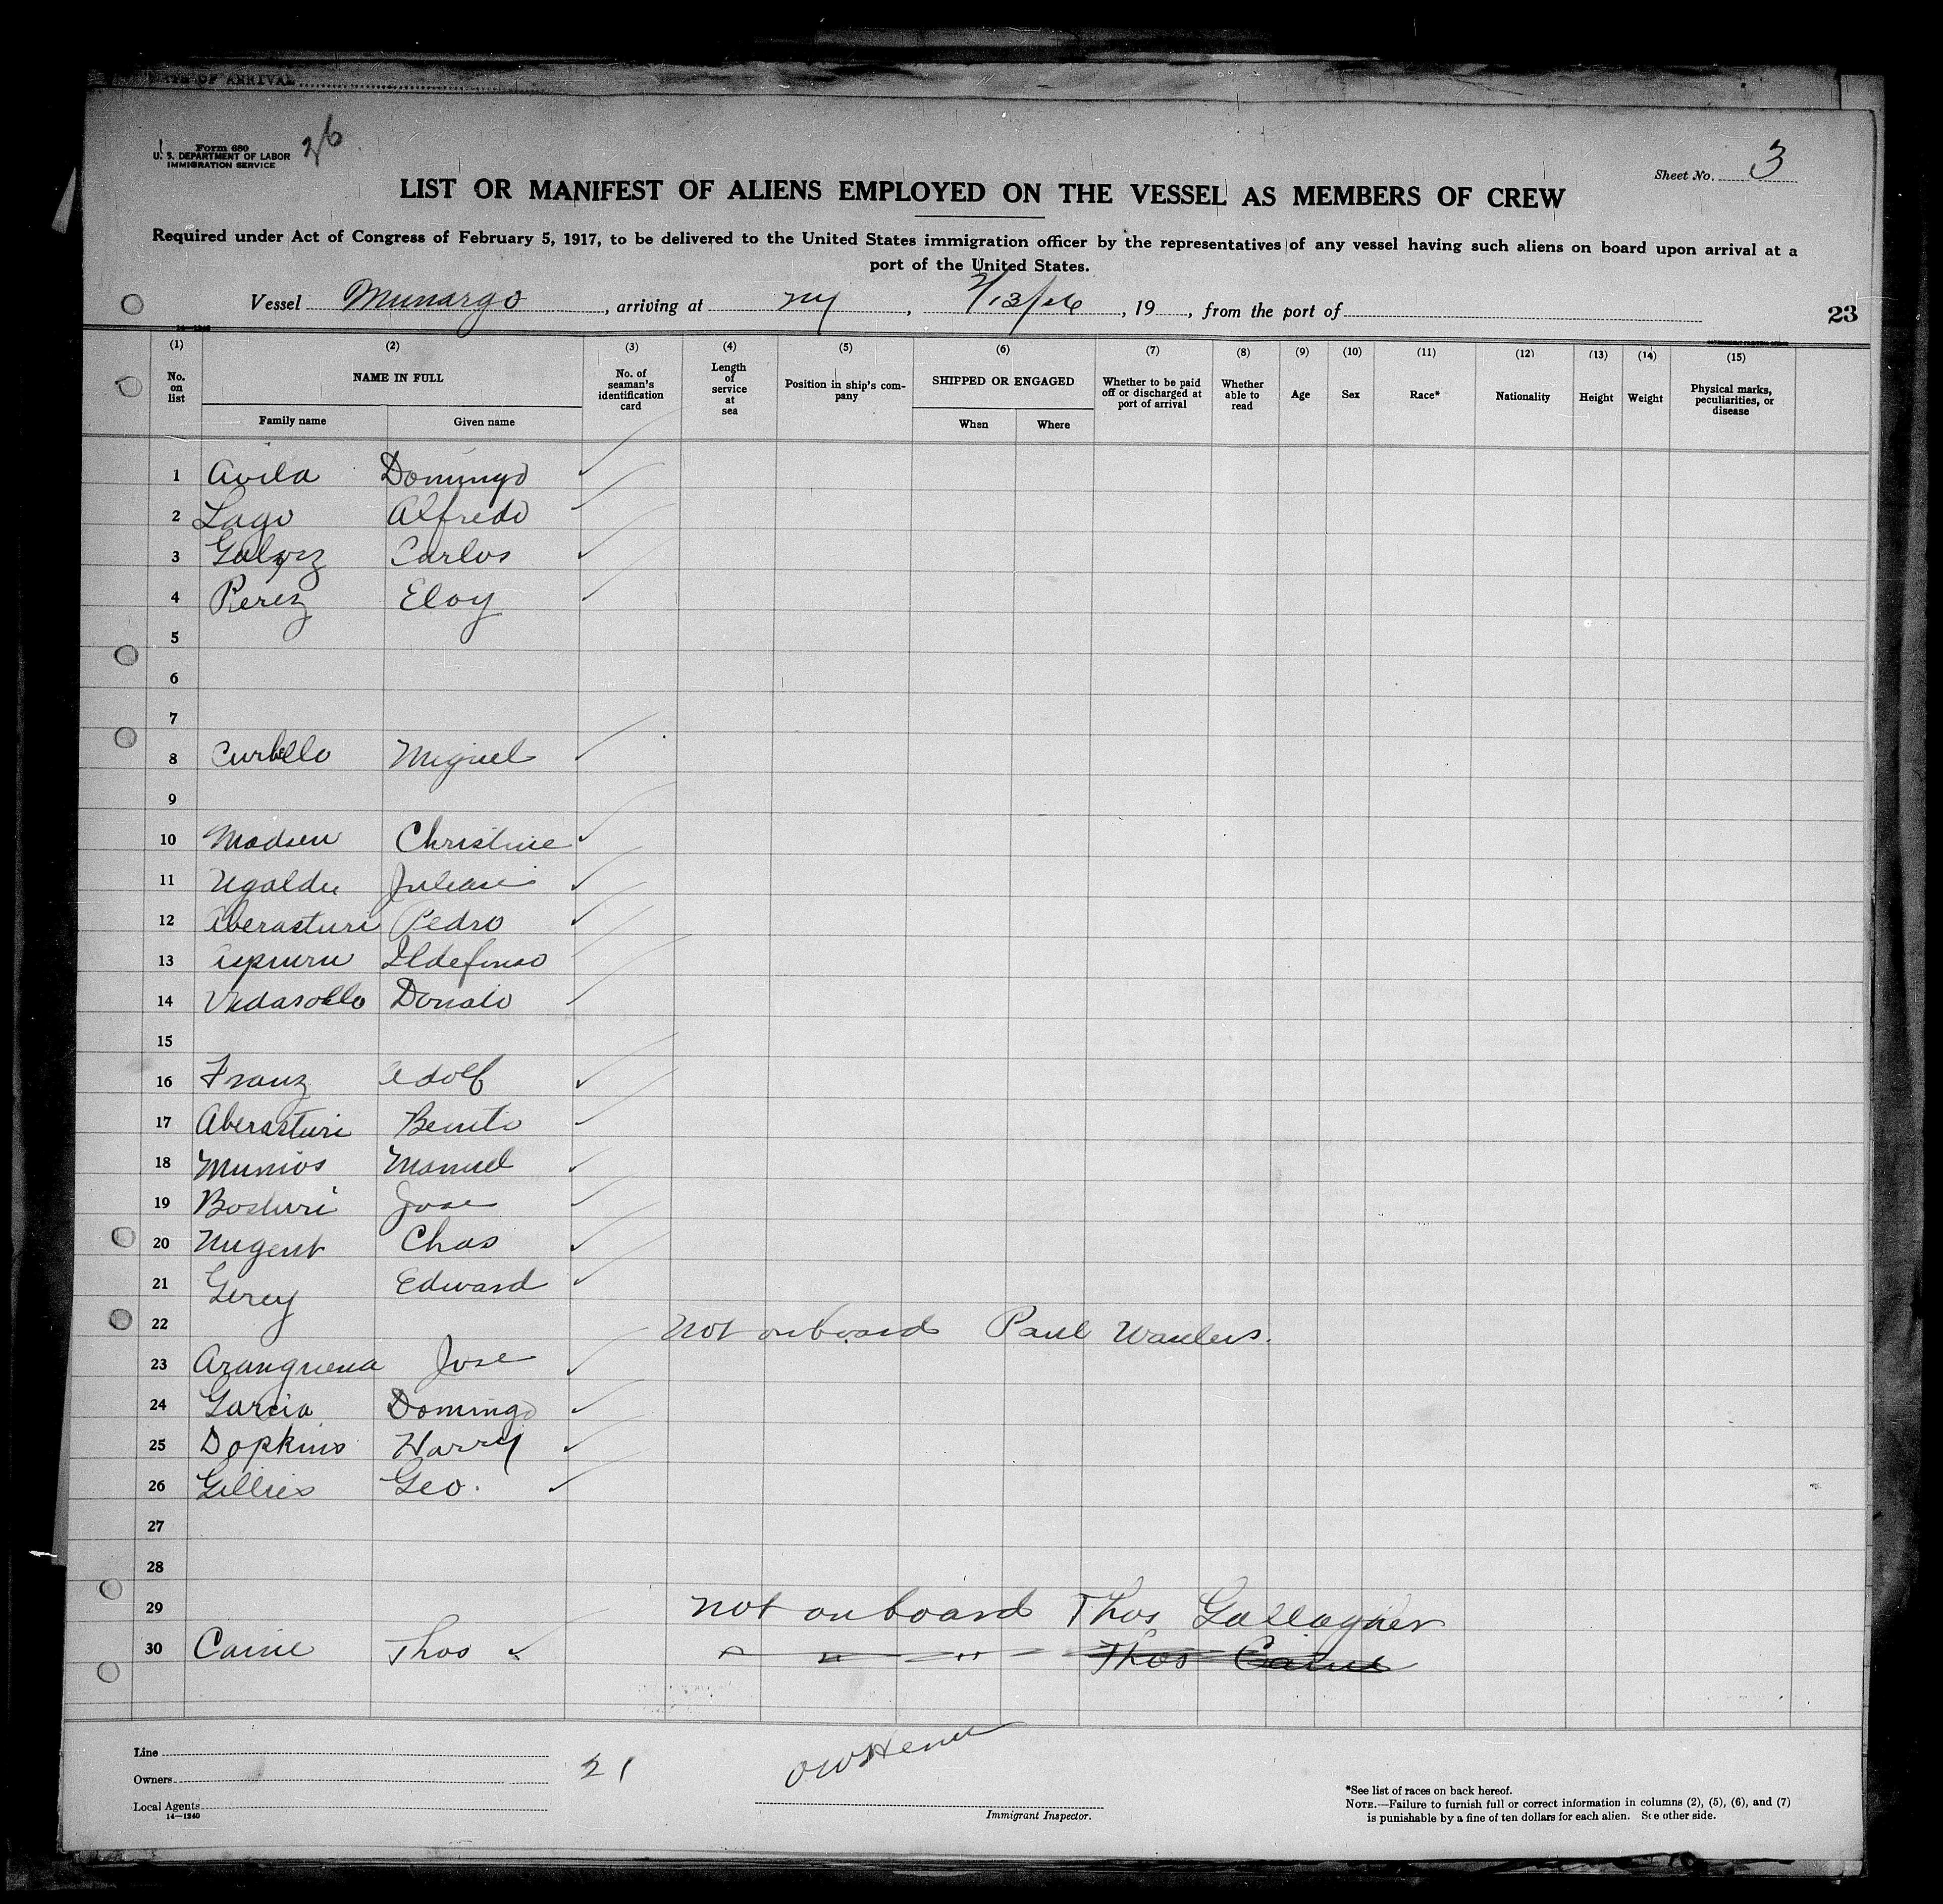 DATE OF ARRIVAL
Form 680
U. S. DEPARTMENT OF LABOR
IMMIGRATION SERVICE
26
Sheet No. 3
LIST OR MANIFEST OF ALIENS EMPLOYED ON THE VESSEL AS MEMBERS OF CREW
Required under Act of Congress of February 5, 1917, to be delivered to the United States immigration officer by the representatives of any vessel having such aliens on board upon arrival at a
port of the United States.
Vessel Munargo, arriving at NY, 2/13/26, 19, from the port of
23
(1) (2) (3) (4) (5) (6) (7) (8) (9) (10) (11) (12) (13) (14) (15)
No. on list
NAME IN FULL
Family name Given name
No. of seaman's identification card
Length of service at sea
Position in ship's company
SHIPPED OR ENGAGED
When Where
Whether to be paid off or discharged at port of arrival
Whether able to read
Age
Sex
Race*
Nationality
Height
Weight
Physical marks, peculiarities, or disease
1 Avila Domingo
2 Lago Alfredo
3 Galvez Carlos
4 Perez Eloy
5
6
7
8 Curbello Miguel
9
10 Madsen Christine
11 Ugalde
12 Aberasturi Pedro
13 Ildefonso
14 Donato
15
16 Franz Adolf
17 Aberasturi Benito
18 Munios Manuel
19 Bosturi Jose
20 Nugent Chas
21 Gerey Edward
22 Not onboard Paul
23 Aranguena Jose
24 Garcia Domingo
25 Dopkins Harry
26 Gillies Geo.
27
28
29 not onboard Thos Gallagher
30 Caine Thos " " Thos Caine
Line
Owners
Local Agents
14—1240
21
Immigrant Inspector.
*See list of races on back hereof.
NOTE.—Failure to furnish full or correct information in columns (2), (5), (6), and (7)
is punishable by a fine of ten dollars for each alien. See other side.